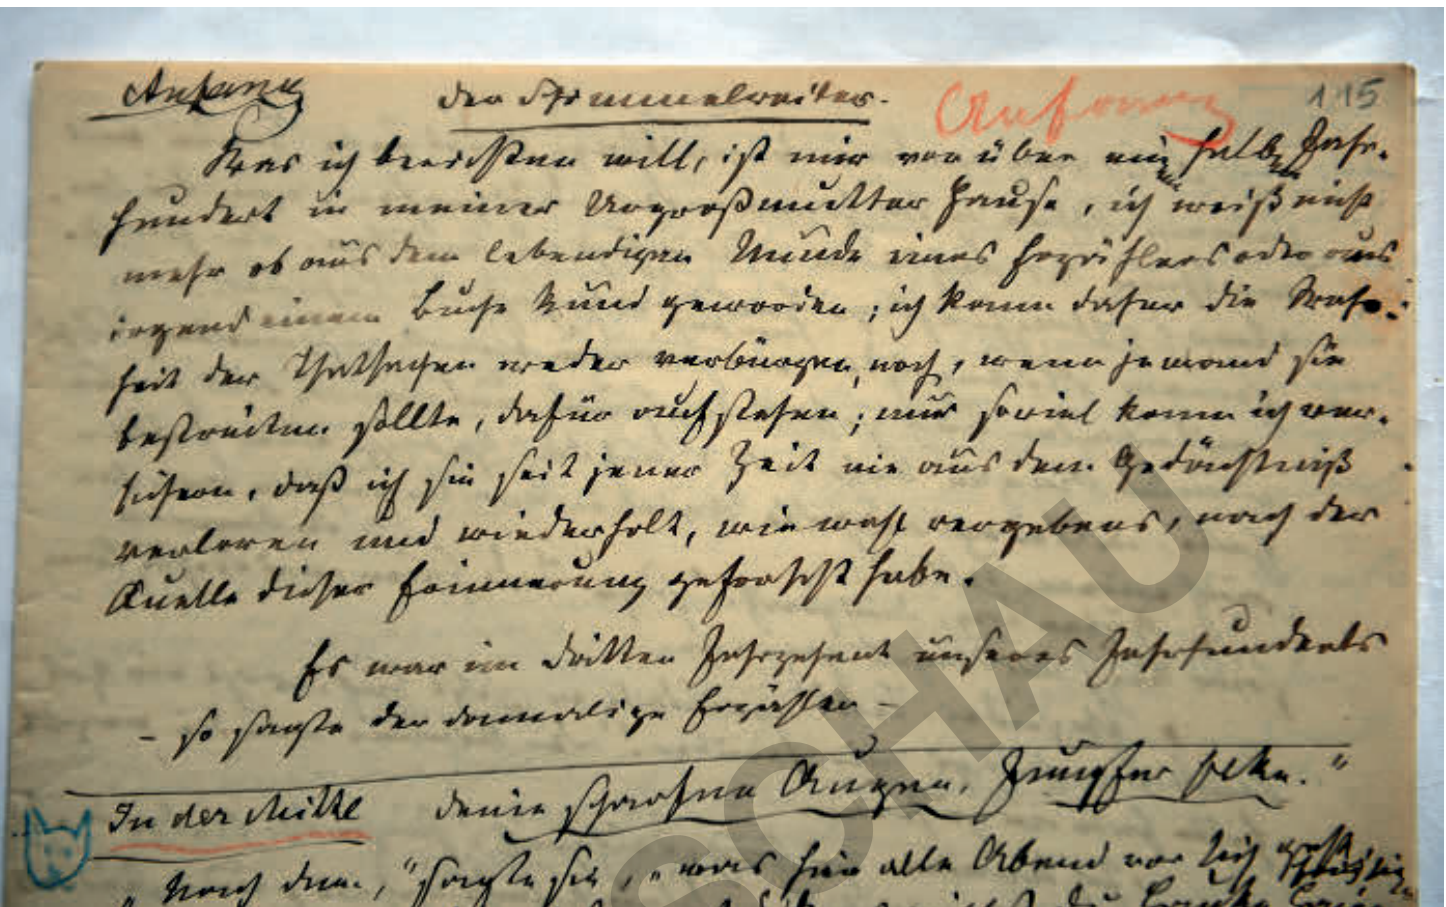 Anfang
Der Schimmelreiter.
Anfang
115
Was ich berichten will, ist mir vor über einem halben Jahr-
hundert in meiner Urgroßmutter Hause, ich weiß nicht
mehr ob aus dem lebendigen Munde eines Erzählers oder aus
irgend einem Buche kund geworden; ich kann daher die Wahr-
heit der Thatsachen weder verbürgen, noch, wenn jemand sie
bestreiten sollte, dafür aufstehen; nur soviel kann ich ver-
sichern, daß ich sie seit jener Zeit nie aus dem Gedächtniß
verloren und wiederholt, wie wohl vergebens, nach der
Quelle dieser Erinnerung geforscht habe.
Es war im dritten Jahrzehent unseres Jahrhunderts
- so sagte der damalige Erzähler -
In der Mitte
Deine scharfen Augen, Jungfer Elke."
„Nach dem," sagte sie, „was hier alle Abend vor sich
SCHAU